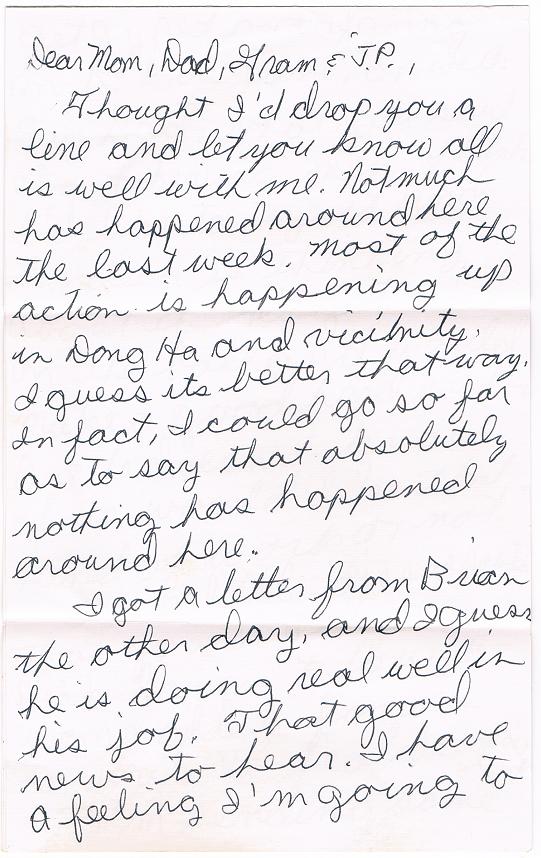 Dear Mom, Dad, Gram & J.P.,
Thought I'd drop you a
line and let you know all
is well with me. Not much
has happened around here
the last week. Most of the
action is happening up
in Dong Ha and vicibnity.
I guess its better that way.
In fact, I could go so far
as to say that absolutely
nothing has happened
around here.
I got a letter from Brian
the other day, and I guess
he is doing real well in
his job. That good
news to hear. I have
a feeling I'm going to